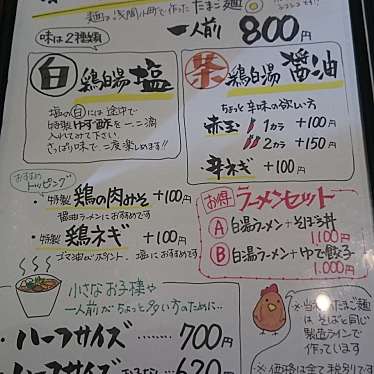 麺は浅間小町で作ったたまご麺
一人前 800円
味は2種類
白 鶏白湯 塩
塩の白には途中で
特製ゆず酢を一二滴
入れてみて下さい。
さっぱり味で二度楽しめます!!
茶 鶏白湯 醤油
ちょっと辛味の欲しい方
赤玉 1カラ +100円
2カラ +150円
辛ネギ +100円
おすすめ
トッピング
特製 鶏の肉みそ +100円
醤油ラーメンにおすすめです
特製 鶏ネギ +100円
ゴマ油がポイント 塩におすすめです
お得 ラーメンセット
Ⓐ 白湯ラーメン+そぼろ丼
1,100円
Ⓑ 白湯ラーメン+ゆで餃子
1,000円
小さなお子様や
一人前がちょっと多い方のために…
・ハーフサイズ 700円
ハーフサイズ 620円
たまご麺
はそばと同じ
製造ラインで
作っています
※価格は全て税別です